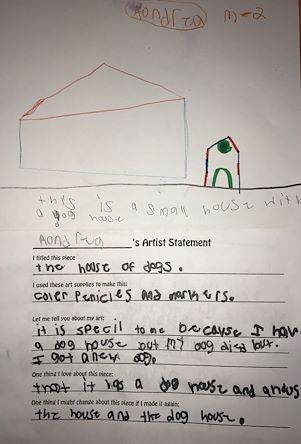 m-2
this is a small house with
a dog house
's Artist Statement
I titled this piece
the house of dogs.
I used these art supplies to make this:
coler penicles and markers.
Let me tell you about my art:
it is specil to me because I have
a dog house but my dog died but.
I got a new dog.
One thing I love about this piece:
that it has a dog house and
One thing I might change about this piece if I made it again:
the house and the dog house.